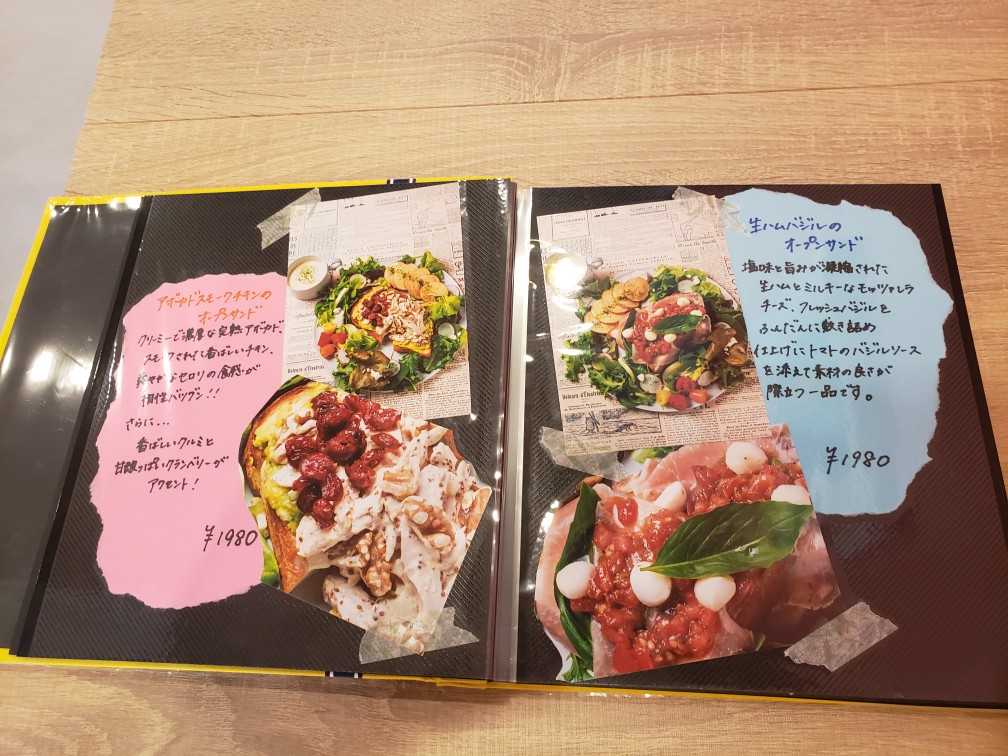 アボカドスモークチキンの
オープンサンド
クリーミーで濃厚な完熟アボカド、
スモークされた香ばしいチキン、
爽やかなセロリの食感が
相性バツグン!!
さらに...
香ばしいクルミと
甘酸っぱいクランベリーが
アクセント!
¥1980
生ハムバジルの
オープンサンド
塩味と旨みが凝縮された
生ハムとミルキーなモッツァレラ
チーズ、フレッシュバジルを
ふんだんに敷き詰め
仕上げにトマトのバジルソース
を添えて素材の良さが
際立つ一品です。
¥1980